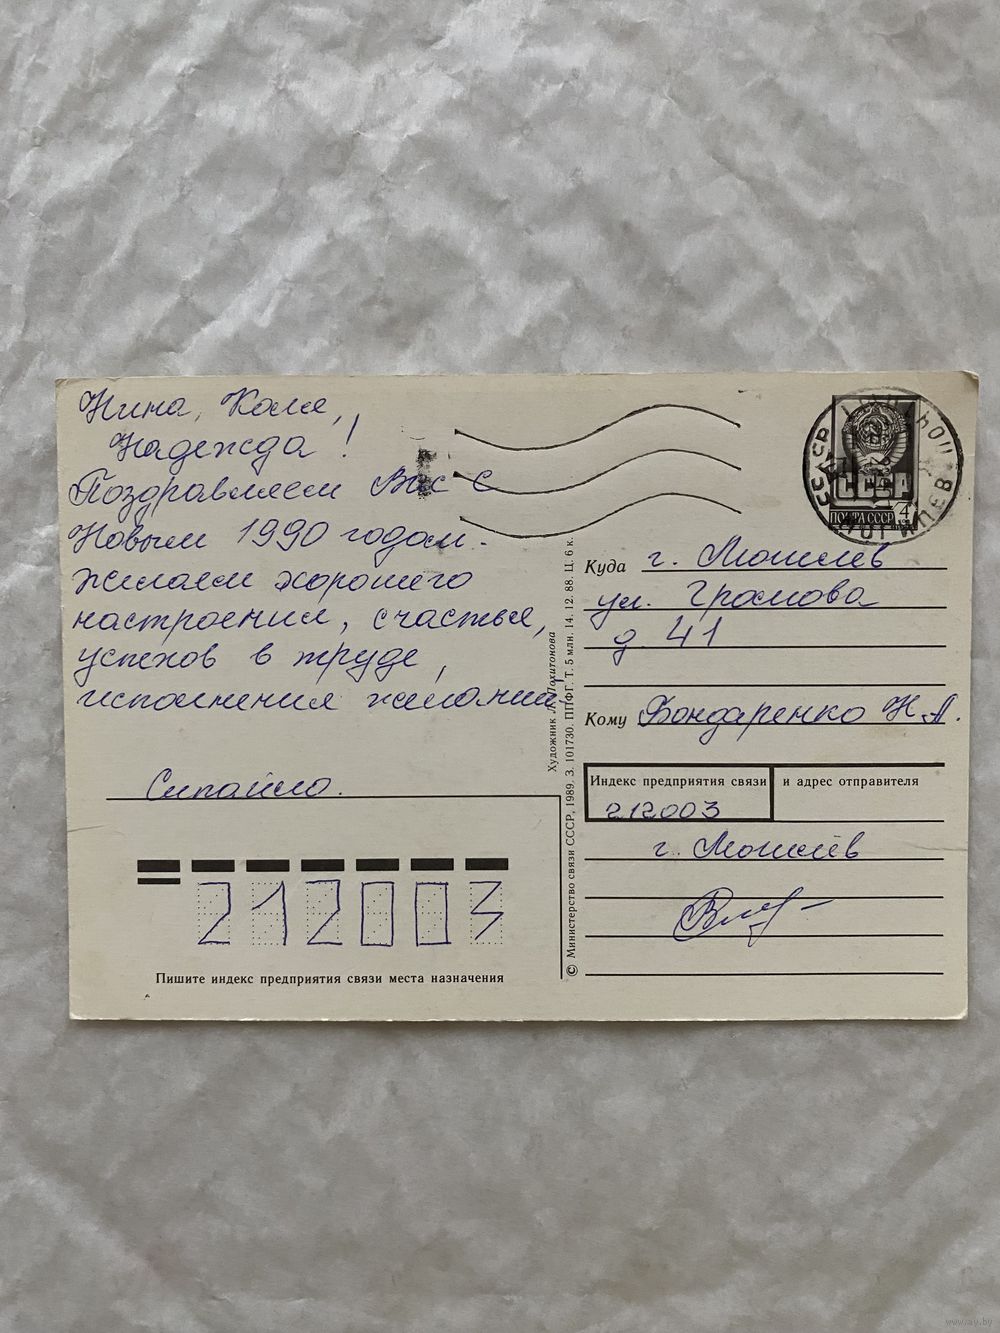 Нина, Коля,
Надежда!
Поздравляем Вас с
Новым 1990 годом.
желаем хорошего
настроения, счастья,
успехов в труде,
исполнения желаний!
Сипайло.
Пишите индекс предприятия связи места назначения
212003
Художник Л. Похитонова
© Министерство связи СССР, 1989. З. 101730. ППФГ. Т. 5 млн. 14. 12. 88. Ц. 6 к.
СССР
МОГИЛЕВ
ПОЧТА СССР 4
Куда г. Могилев
ул. Громова
д. 41
Кому Бондаренко Н.А.
Индекс предприятия связи и адрес отправителя
212003
г. Могилёв
www.ay.by